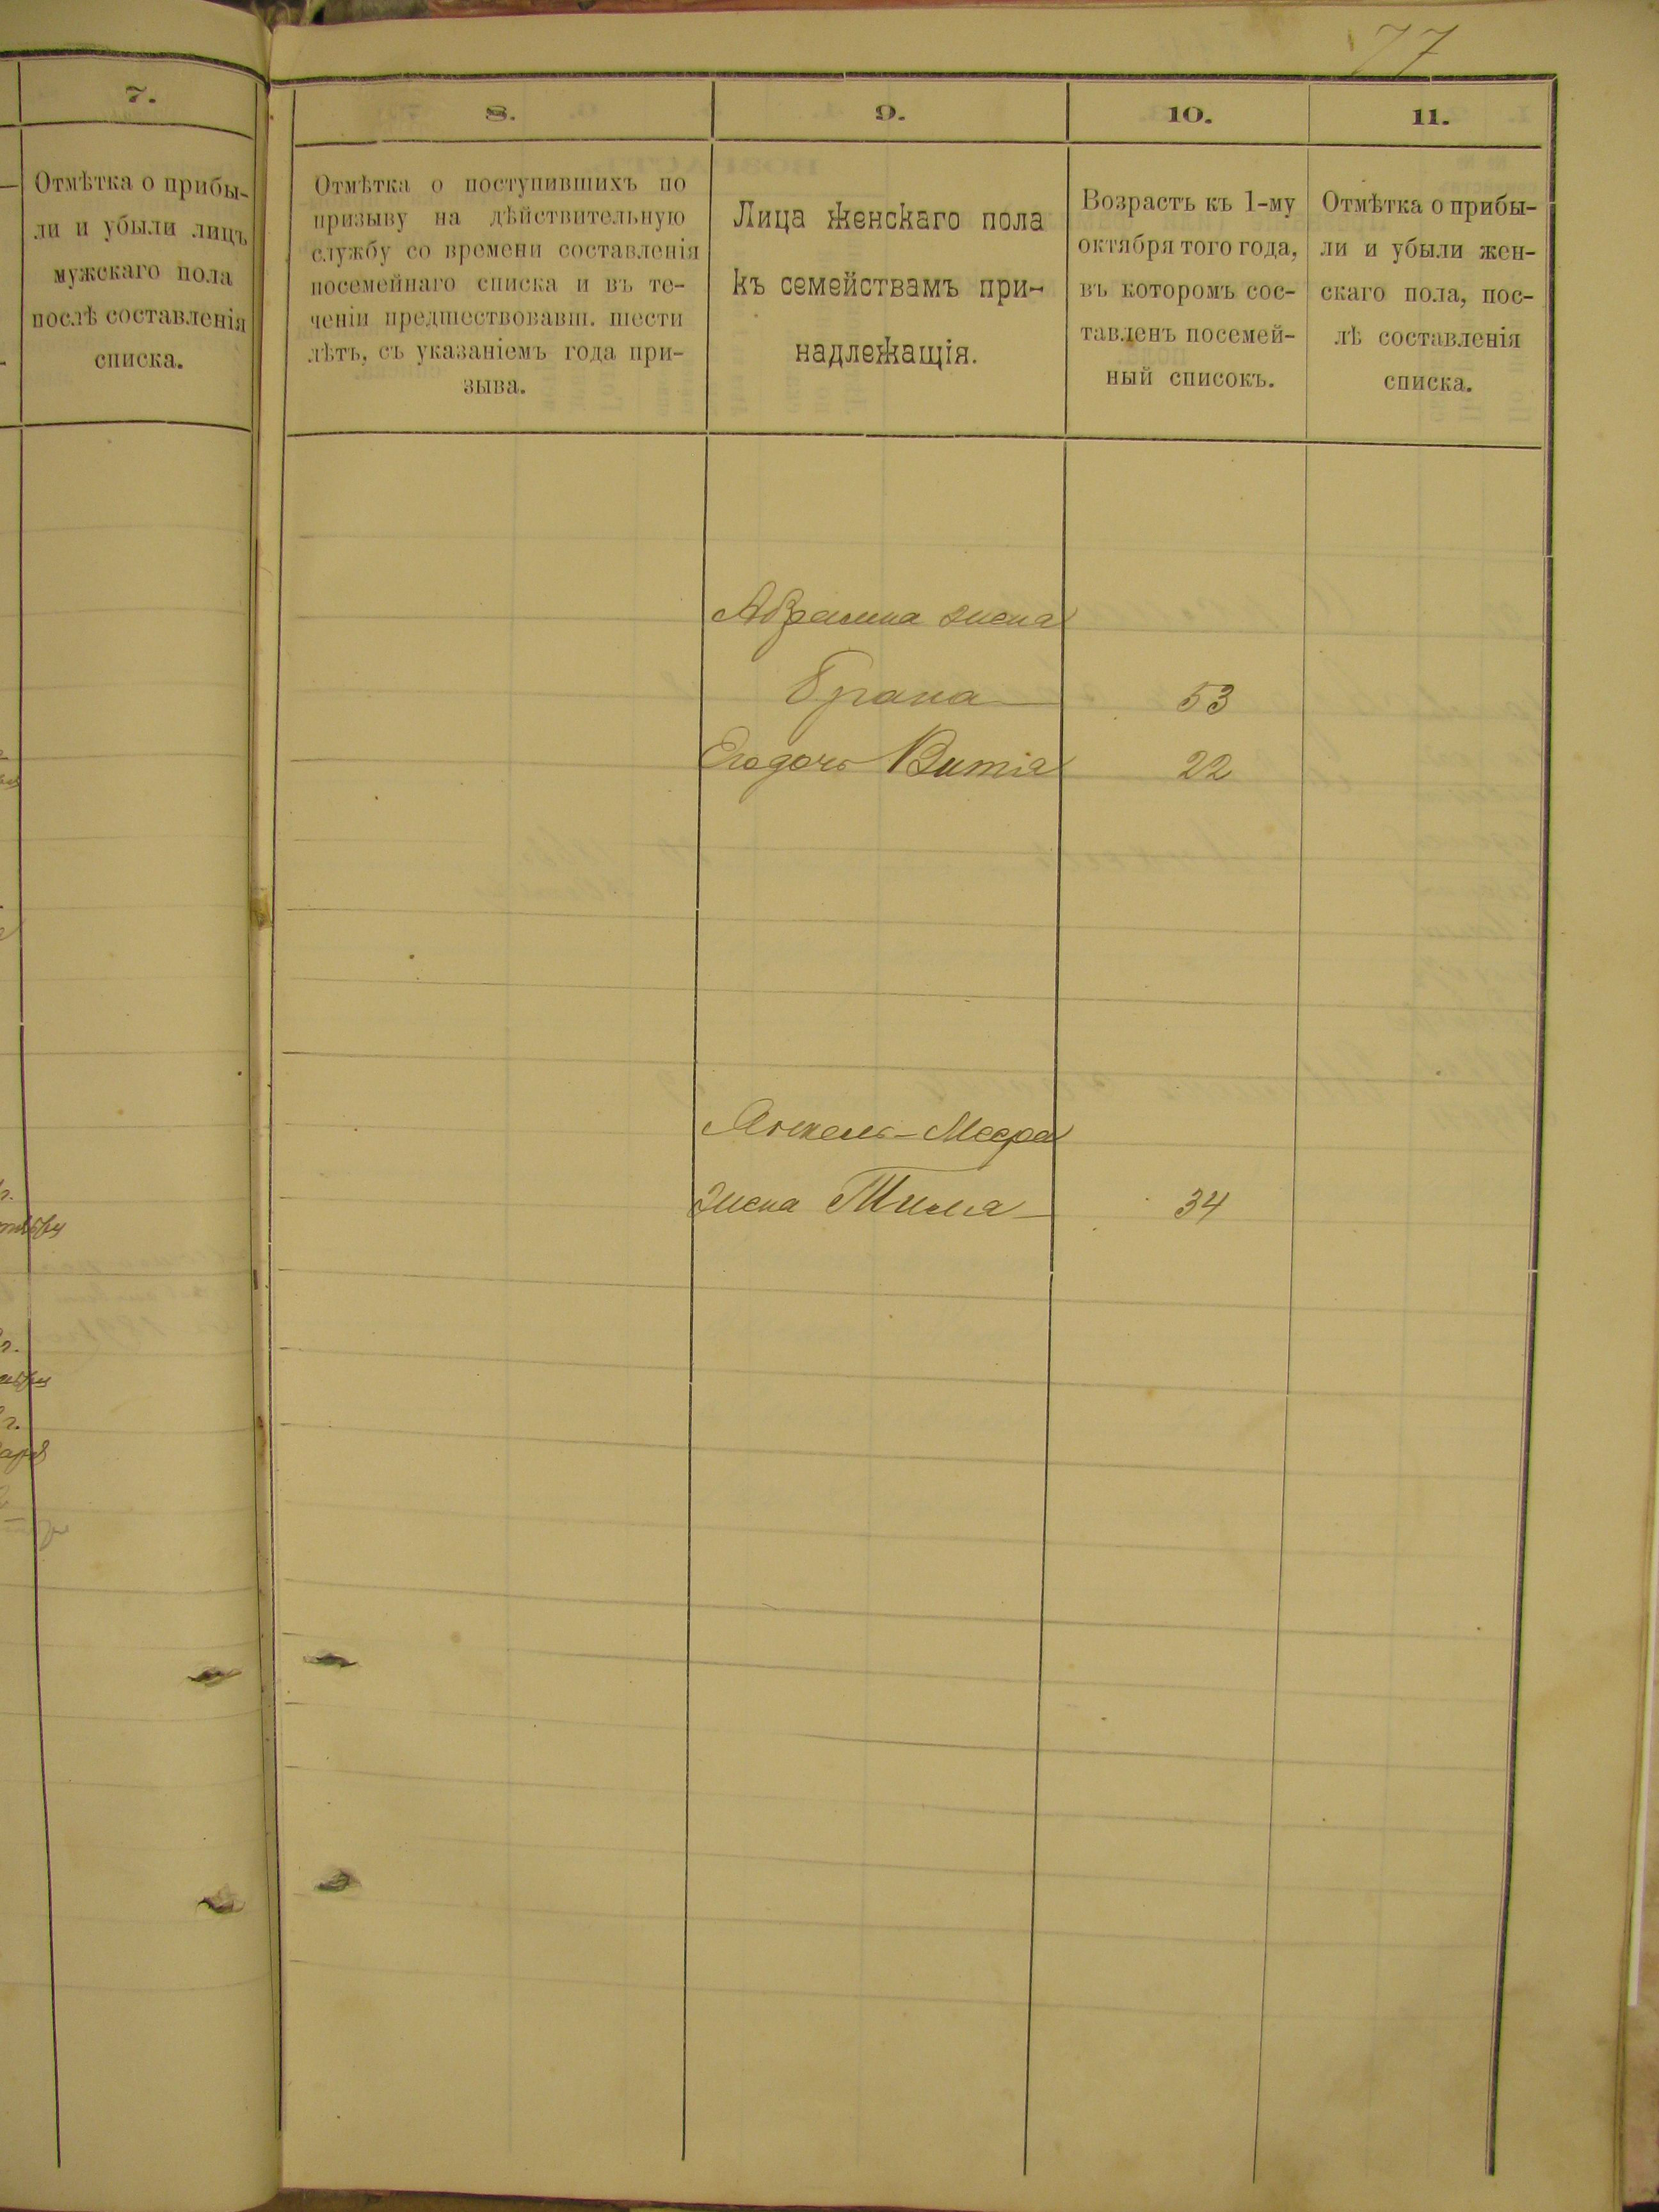 77
7.
Отмѣтка о прибы-
ли и убыли лицъ
мужскаго пола
послѣ составленія
списка.
8.
Отмѣтка о поступившихъ по
призыву на дѣйствительную
службу со времени составленія
посемейнаго списка и въ те-
ченіи предшествовавш. шести
лѣтъ, съ указаніемъ года при-
зыва.
9.
Лица женскаго пола
къ семействамъ при-
надлежащія.
10.
Возрастъ къ 1-му
октября того года,
въ которомъ сос-
тавленъ посемей-
ный списокъ.
11.
Отмѣтка о прибы-
ли и убыли жен-
скаго пола, пос-
лѣ составленія
списка.
Абрама жена
Брана 53
Его дочь 22
Янкель-Меера
жена 34